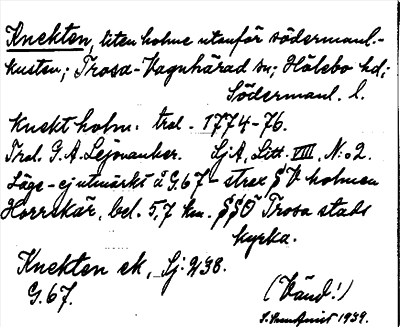 Knekten, liten holme utanför södermanl.-
kusten; Trosa-Vagnhärad sn; Hölebo hd;
Södermanl. l.
Knekt holm: tral. - 1774-76.
Tral. G.A. Lejonanker. SjA, Litt. VIII, N:o 2.
Läge - ej utmärkt å G.67 - strax S V holmen
Horrskär, bel. 5,7 km. SSÖ Trosa stads
kyrka.
Knekten sk, Sj. 238.
G. 67.
(Vänd!)
1939.